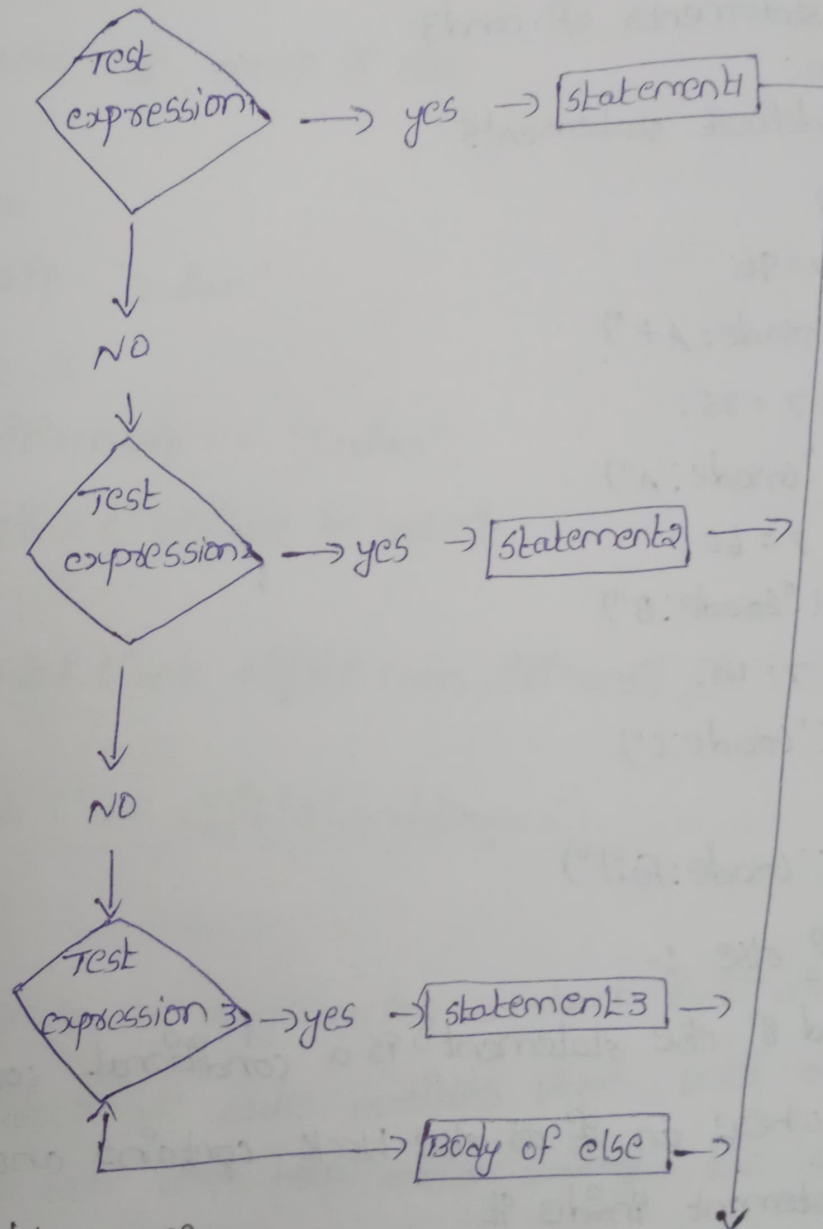 Test
expression1
yes
statement1
NO
Test
expression2
yes
statement2
NO
Test
expression 3
yes
statement3
Body of else